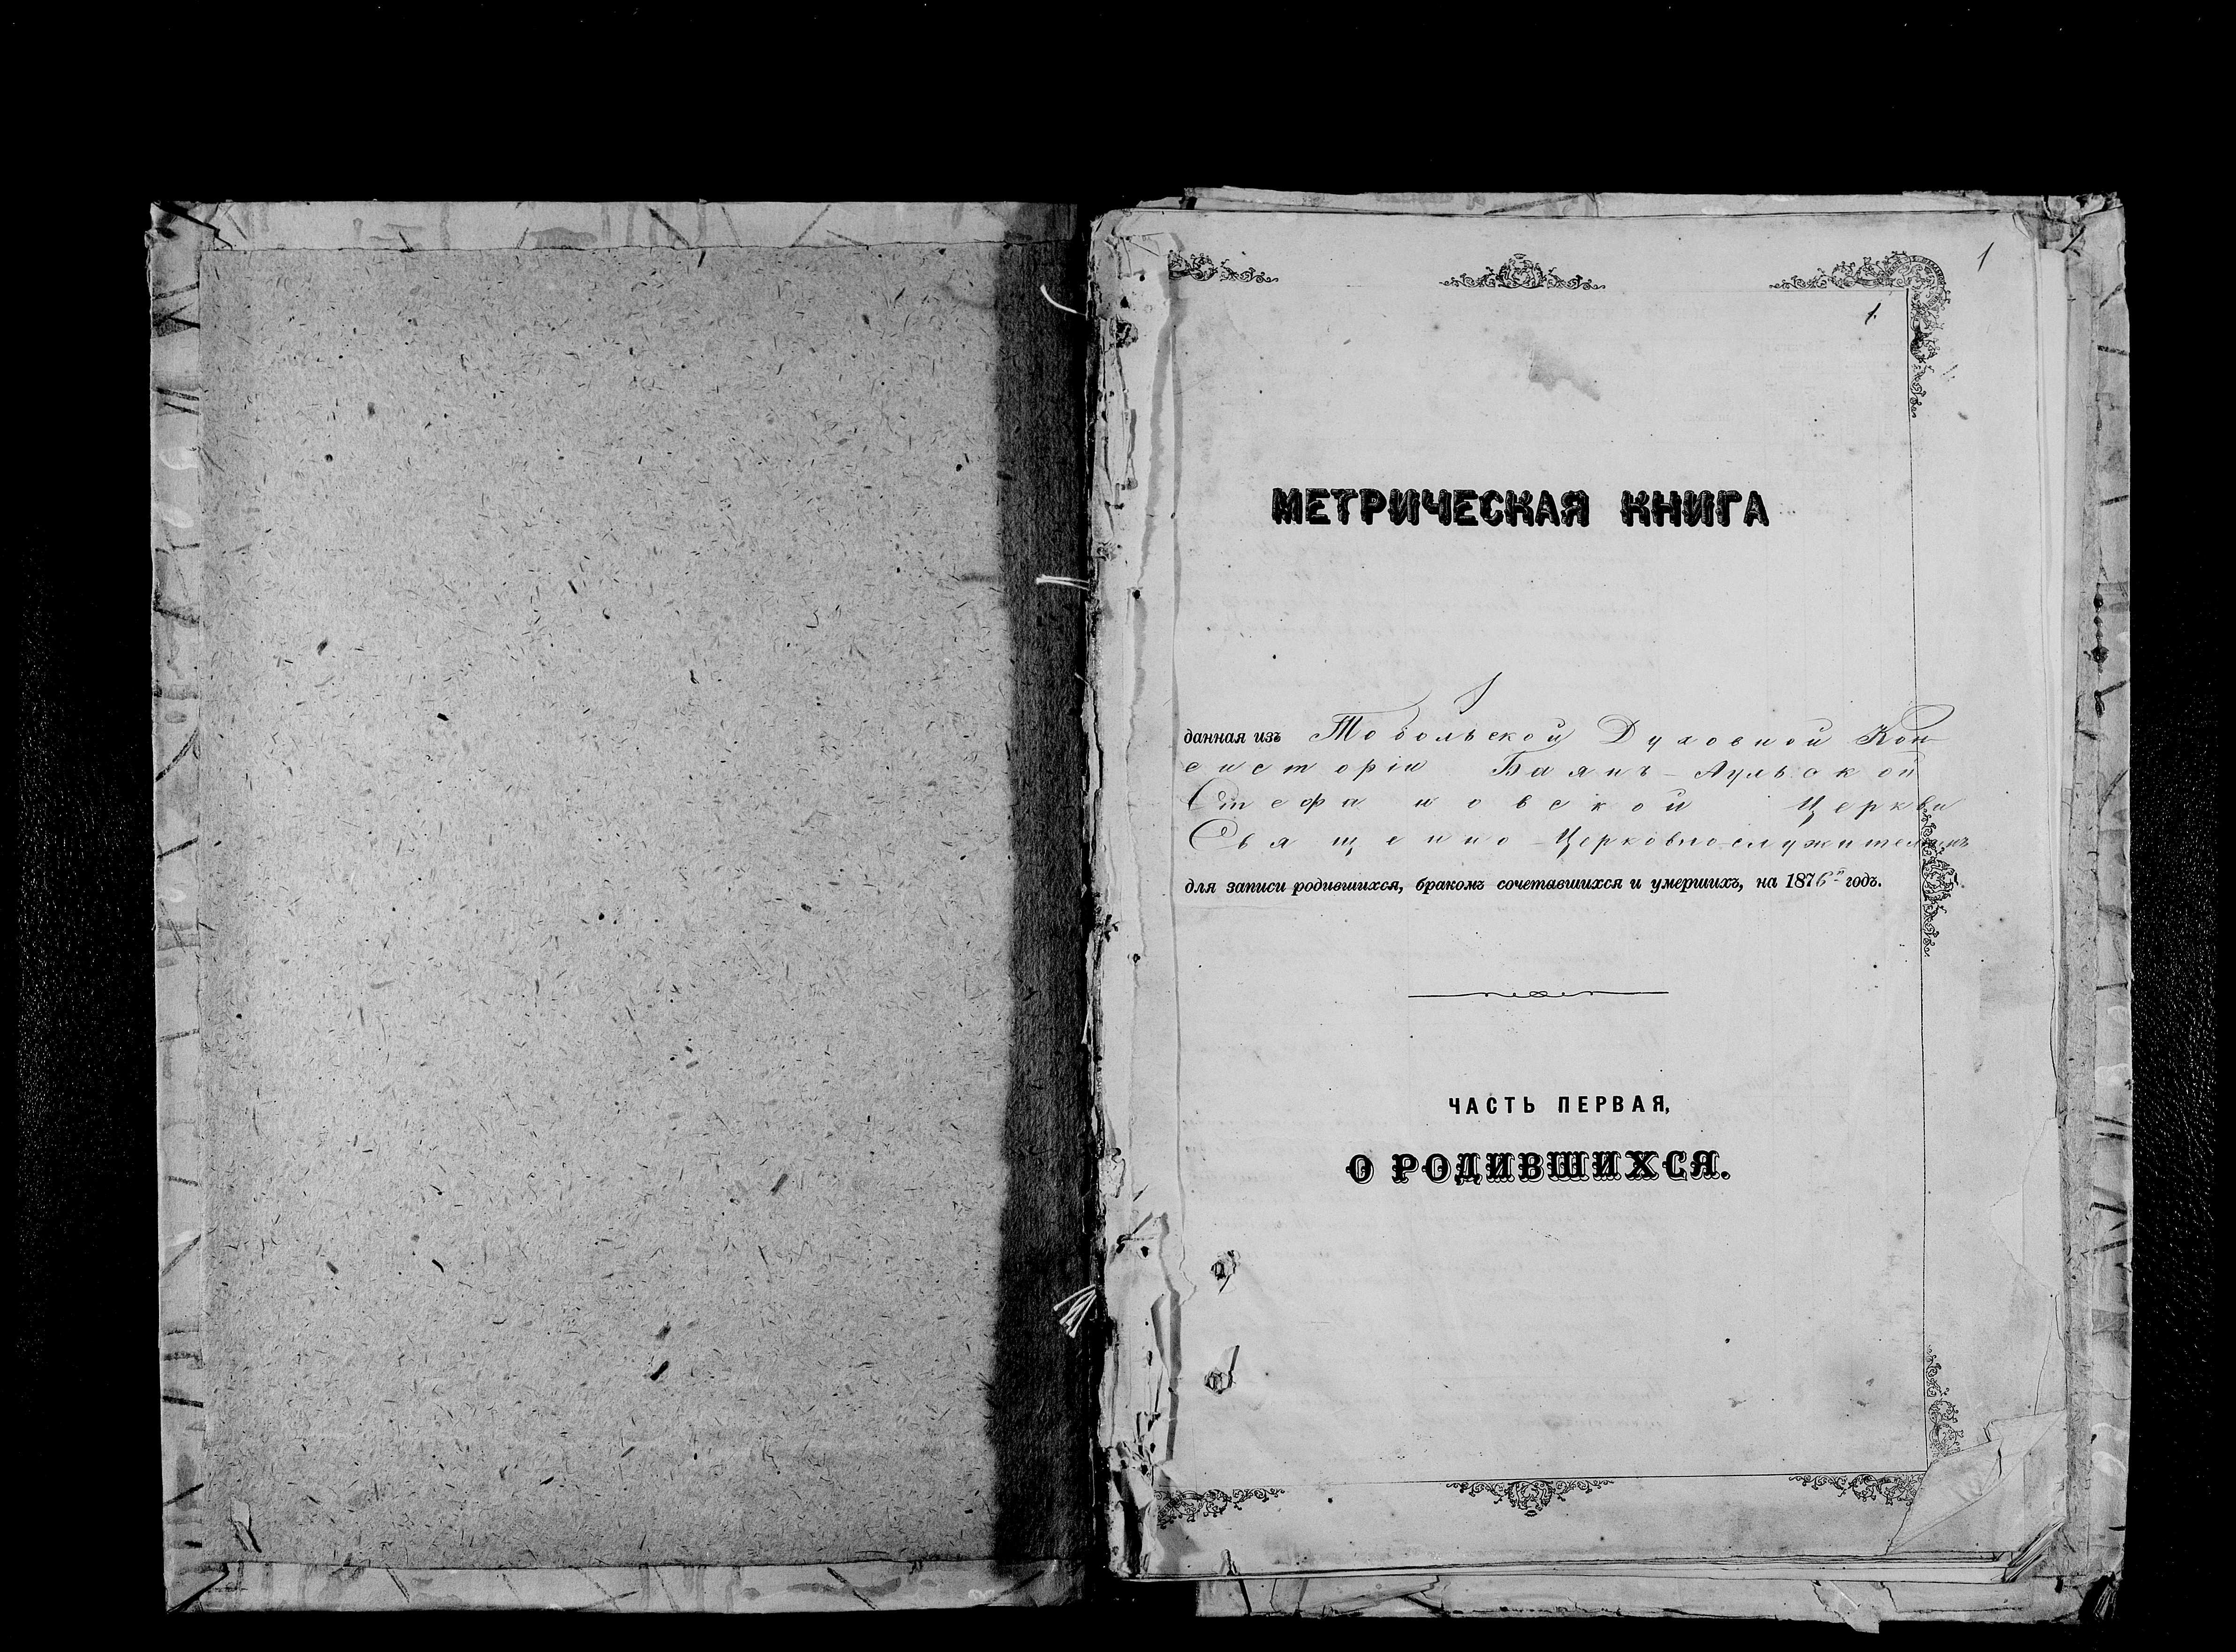 1
1
МЕТРИЧЕСКАЯ КНИГА
данная изъ Тобольской Духовной Кон-
систоріи Баянъ-Аульской
Стефановской Церкви
Священно-Церковно-служителямъ
для записи родившихся, бракомъ сочетавшихся и умершихъ, на 1876й годъ.
ЧАСТЬ ПЕРВАЯ,
О РОДИВШИХСЯ.